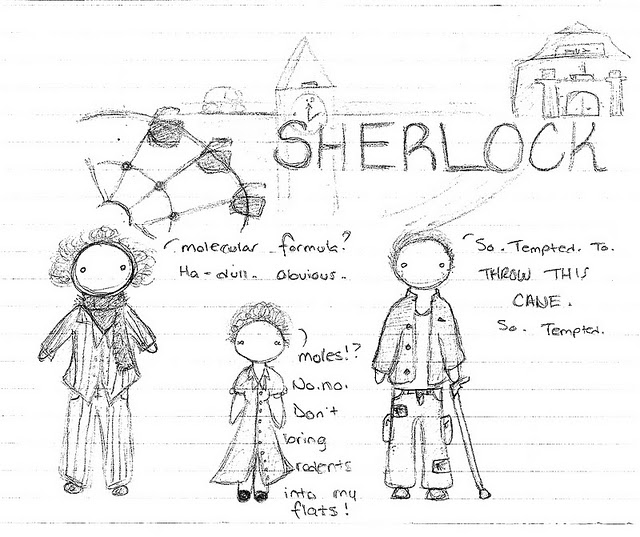 SHERLOCK
molecular formula?
Ha-dull. obvious.
moles!?
No. no.
Don't
bring
rodents
into my
flats!
So. Tempted. To.
THROW THIS
CANE.
So. Tempted.